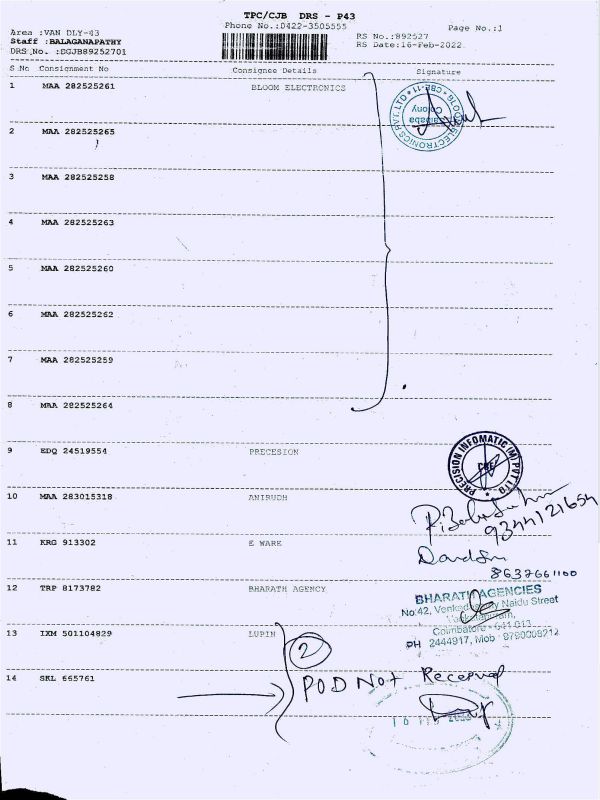 TPC/CJB DRS - P43
Phone No.:0422-3505555
Page No.:1
Area :VAN DLY-43
Staff :BALAGANAPATHY
DRS No. :DGJB89252701
RS No.:892527
RS Date:16-Feb-2022
S No Consignment No Consignee Details Signature
1 MAA 282525261 BLOOM ELECTRONICS
2 MAA 282525265
3 MAA 282525258
4 MAA 282525263
5 MAA 282525260
6 MAA 282525262
7 MAA 282525259
8 MAA 282525264
9 EDQ 24519554 PRECESION
PRECISION INFOMATIC (M) PVT LTD
CBE
10 MAA 283015318 ANIRUDH
9344121654
11 KRG 913302 E WARE
8637661100
12 TRP 8173782 BHARATH AGENCY
BHARATH AGENCIES
No:42, Naidu Street
Coimbatore - 641 013
PH 2444917, Mob : 9790008212
13 IXM 501104829 LUPIN
2
14 SKL 665761
POD Not Received